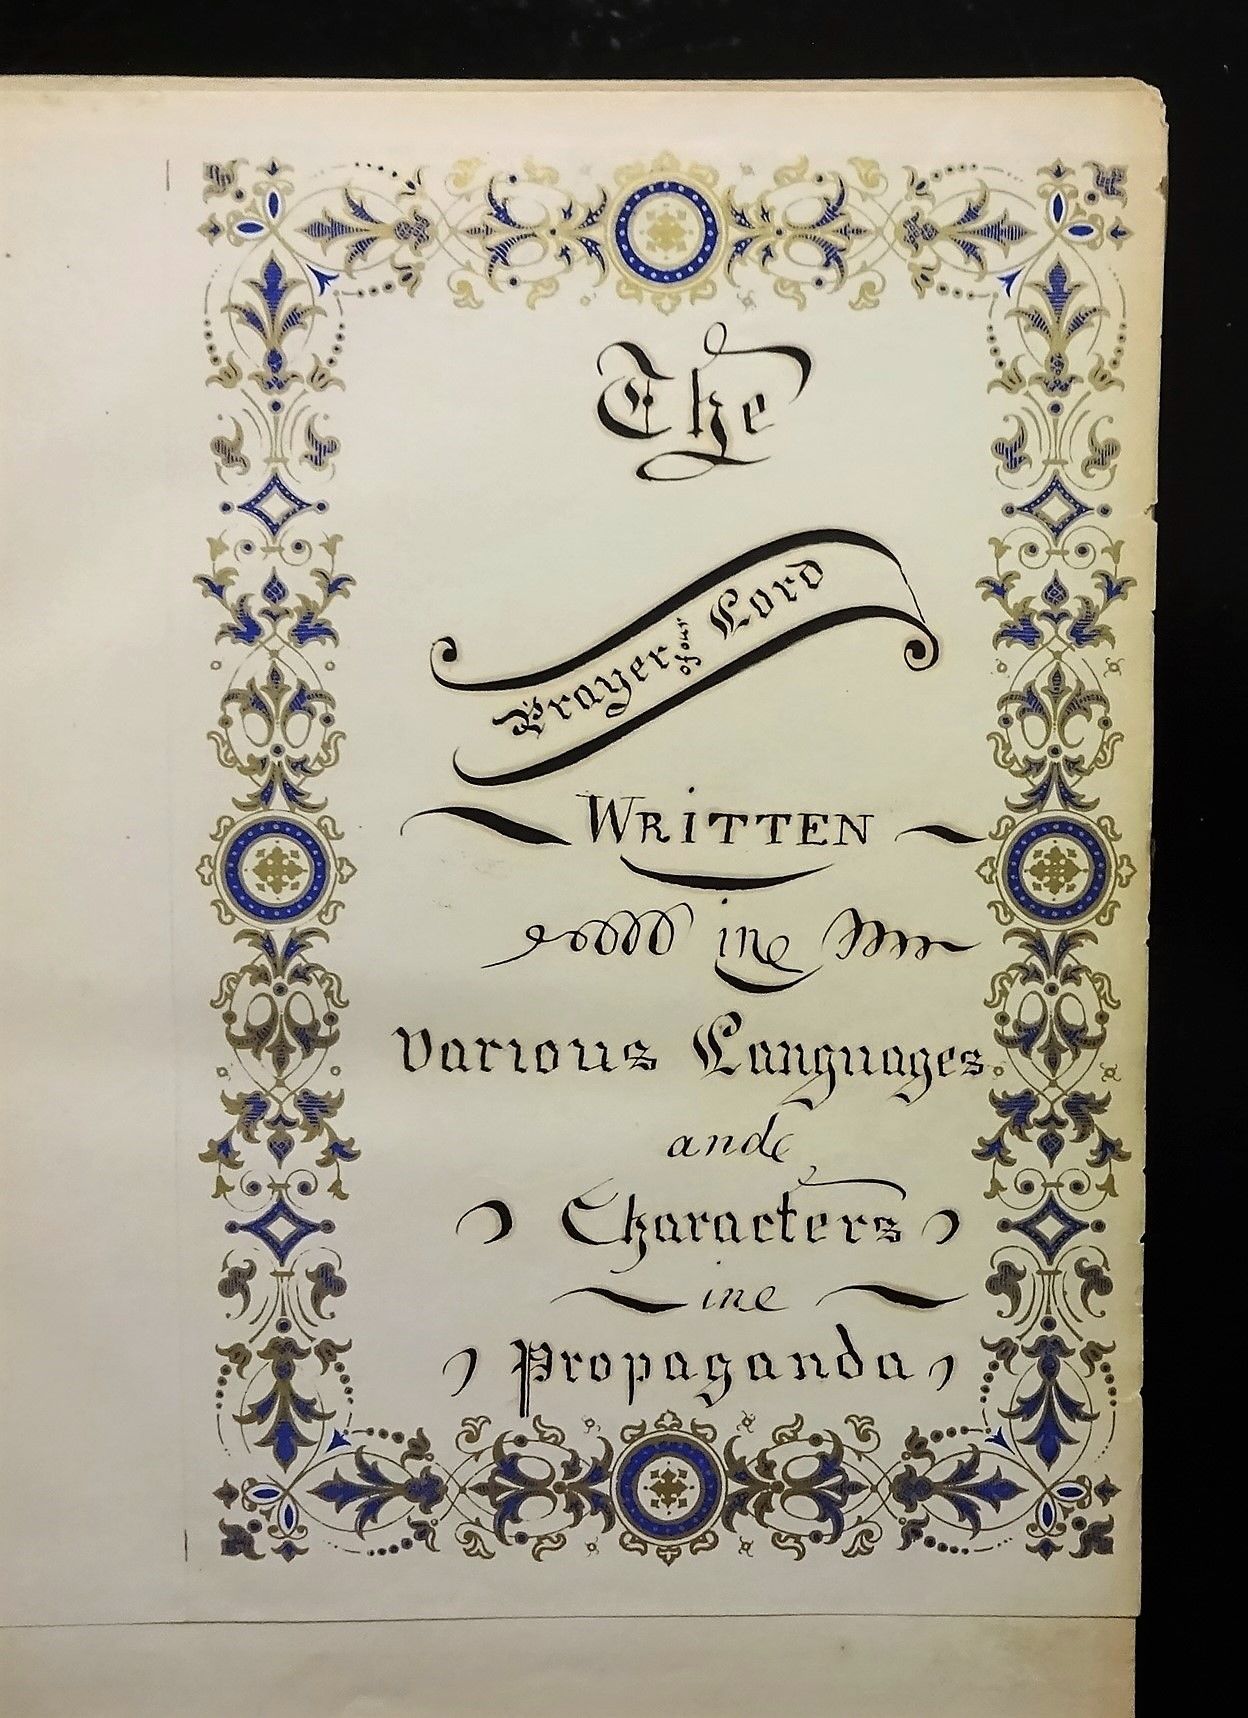 The
Prayer of our Lord
WRITTEN
in
Various Languages
and
Characters
in
Propaganda